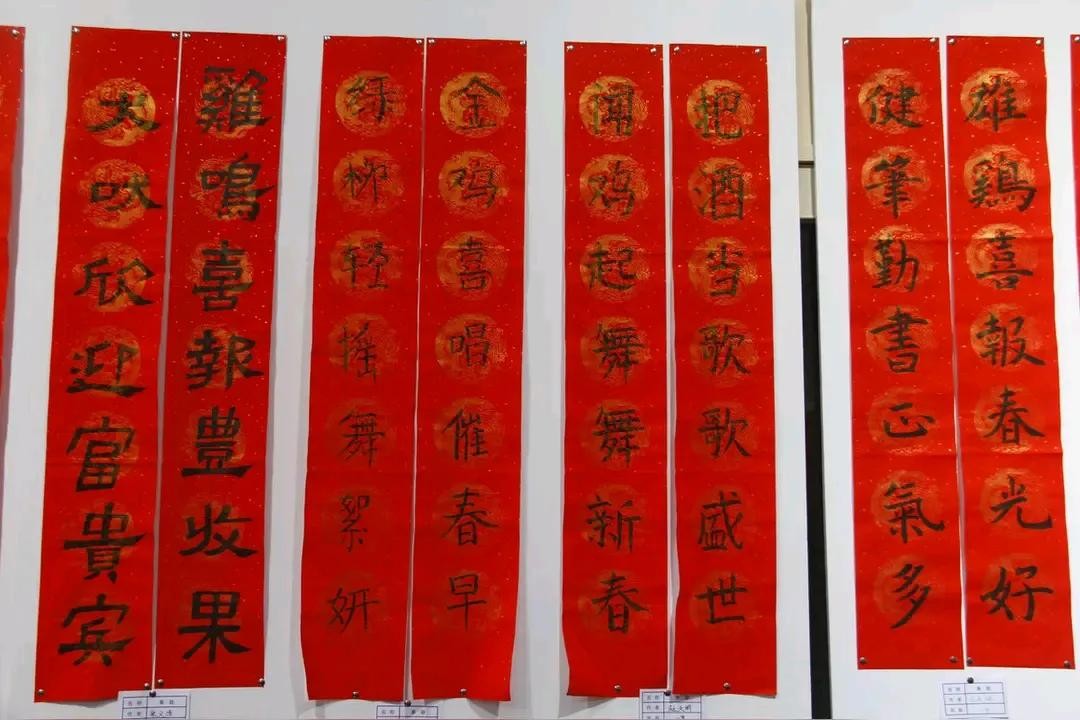 雄鷄喜報春光好
健筆勤書正氣多
把酒当歌歌盛世
闻鸡起舞舞新春
金鸡喜唱催春早
柳輕搖舞絮妍
雞鳴喜報豊收果
犬吠欣迎富貴宾